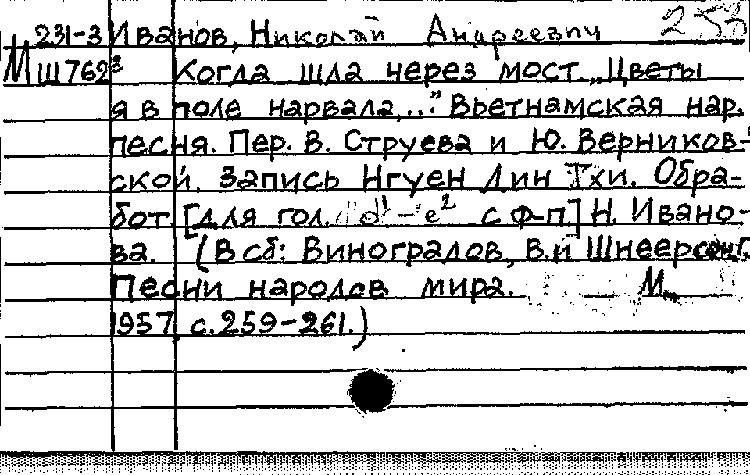 231-3 Иванов, Николай Андреевич 253
М Ш762³ Когда шла через мост „Цветы
я в поле нарвала..." Вьетнамская нар.
песня. Пер. В. Струева и Ю. Верников-
ской. Запись Нгуен Лин Тхи. Обра-
бот. [для гол. d¹-e² с ф-п] Н. Ивано-
ва. (В сб: Виноградов, В. и Шнеерсон, Г.
Песни народов мира. М.
1957, с. 259-261.)